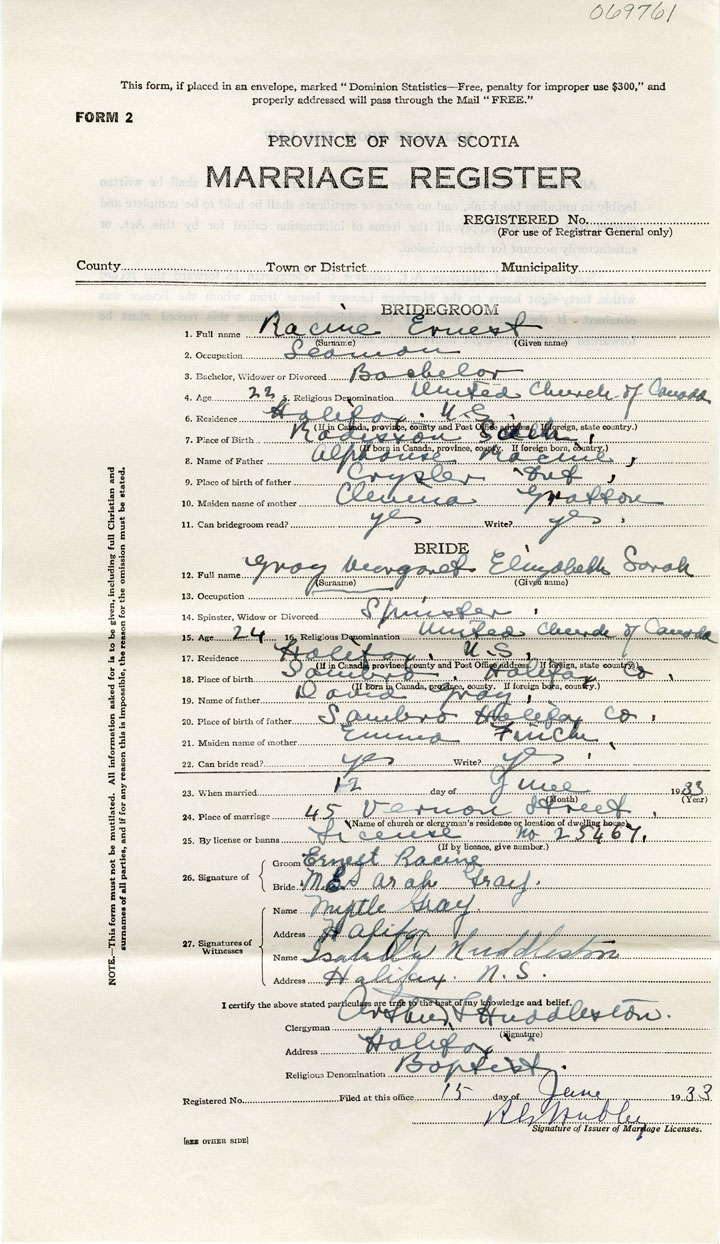 069761
This form, if placed in an envelope, marked "Dominion Statistics—Free, penalty for improper use $300," and
properly addressed will pass through the Mail "FREE."
FORM 2
PROVINCE OF NOVA SCOTIA
MARRIAGE REGISTER
REGISTERED No.
(For use of Registrar General only)
County Town or District Municipality
BRIDEGROOM
1. Full name Racine Ernest
(Surname) (Given name)
2. Occupation Seaman
3. Bachelor, Widower or Divorced Bachelor
4. Age 22 5. Religious Denomination United Church of Canada
6. Residence Halifax. N.S.
(If in Canada, province, county and Post Office address. If foreign, state country.)
7. Place of Birth Radisson Sask,
(If born in Canada, province, county. If foreign born, country.)
8. Name of Father Alphonse Racine,
9. Place of birth of father Crysler Ont,
10. Maiden name of mother Clemina Gratton
11. Can bridegroom read? yes Write? yes,
BRIDE
12. Full name Gray Margaret Elizabeth Sarah
(Surname) (Given name)
13. Occupation
14. Spinster, Widow or Divorced Spinster,
15. Age 24 16. Religious Denomination United Church of Canada
17. Residence Halifax, N.S,
(If in Canada, province, county and Post Office address. If foreign, state country.)
18. Place of birth Sambro, Halifax Co,
(If born in Canada, province, county. If foreign born, country.)
19. Name of father David Gray,
20. Place of birth of father Sambro Halifax Co,
21. Maiden name of mother Emma Finch
22. Can bride read? yes Write? yes,
23. When married 12 day of June 1933
(Month) (Year)
24. Place of marriage 45 Vernon Street,
(Name of church or clergyman's residence or location of dwelling house)
25. By license or banns License no 25467.
(If by licence, give number.)
26. Signature of
Groom Ernest Racine
Bride M.E. Sarah Gray.
27. Signatures of Witnesses
Name Myrtle Gray
Address Halifax
Name Huddleston
Address Halifax. N.S.
I certify the above stated particulars are true to the best of my knowledge and belief.
Clergyman Arthur Huddleston.
(Signature)
Address Halifax
Religious Denomination Baptist.
Registered No. Filed at this office 15 day of June 1933
Signature of Issuer of Marriage Licenses.
[SEE OTHER SIDE]
NOTE.—This form must not be mutilated. All information asked for is to be given, including full Christian and
surnames of all parties, and if for any reason this is impossible, the reason for the omission must be stated.